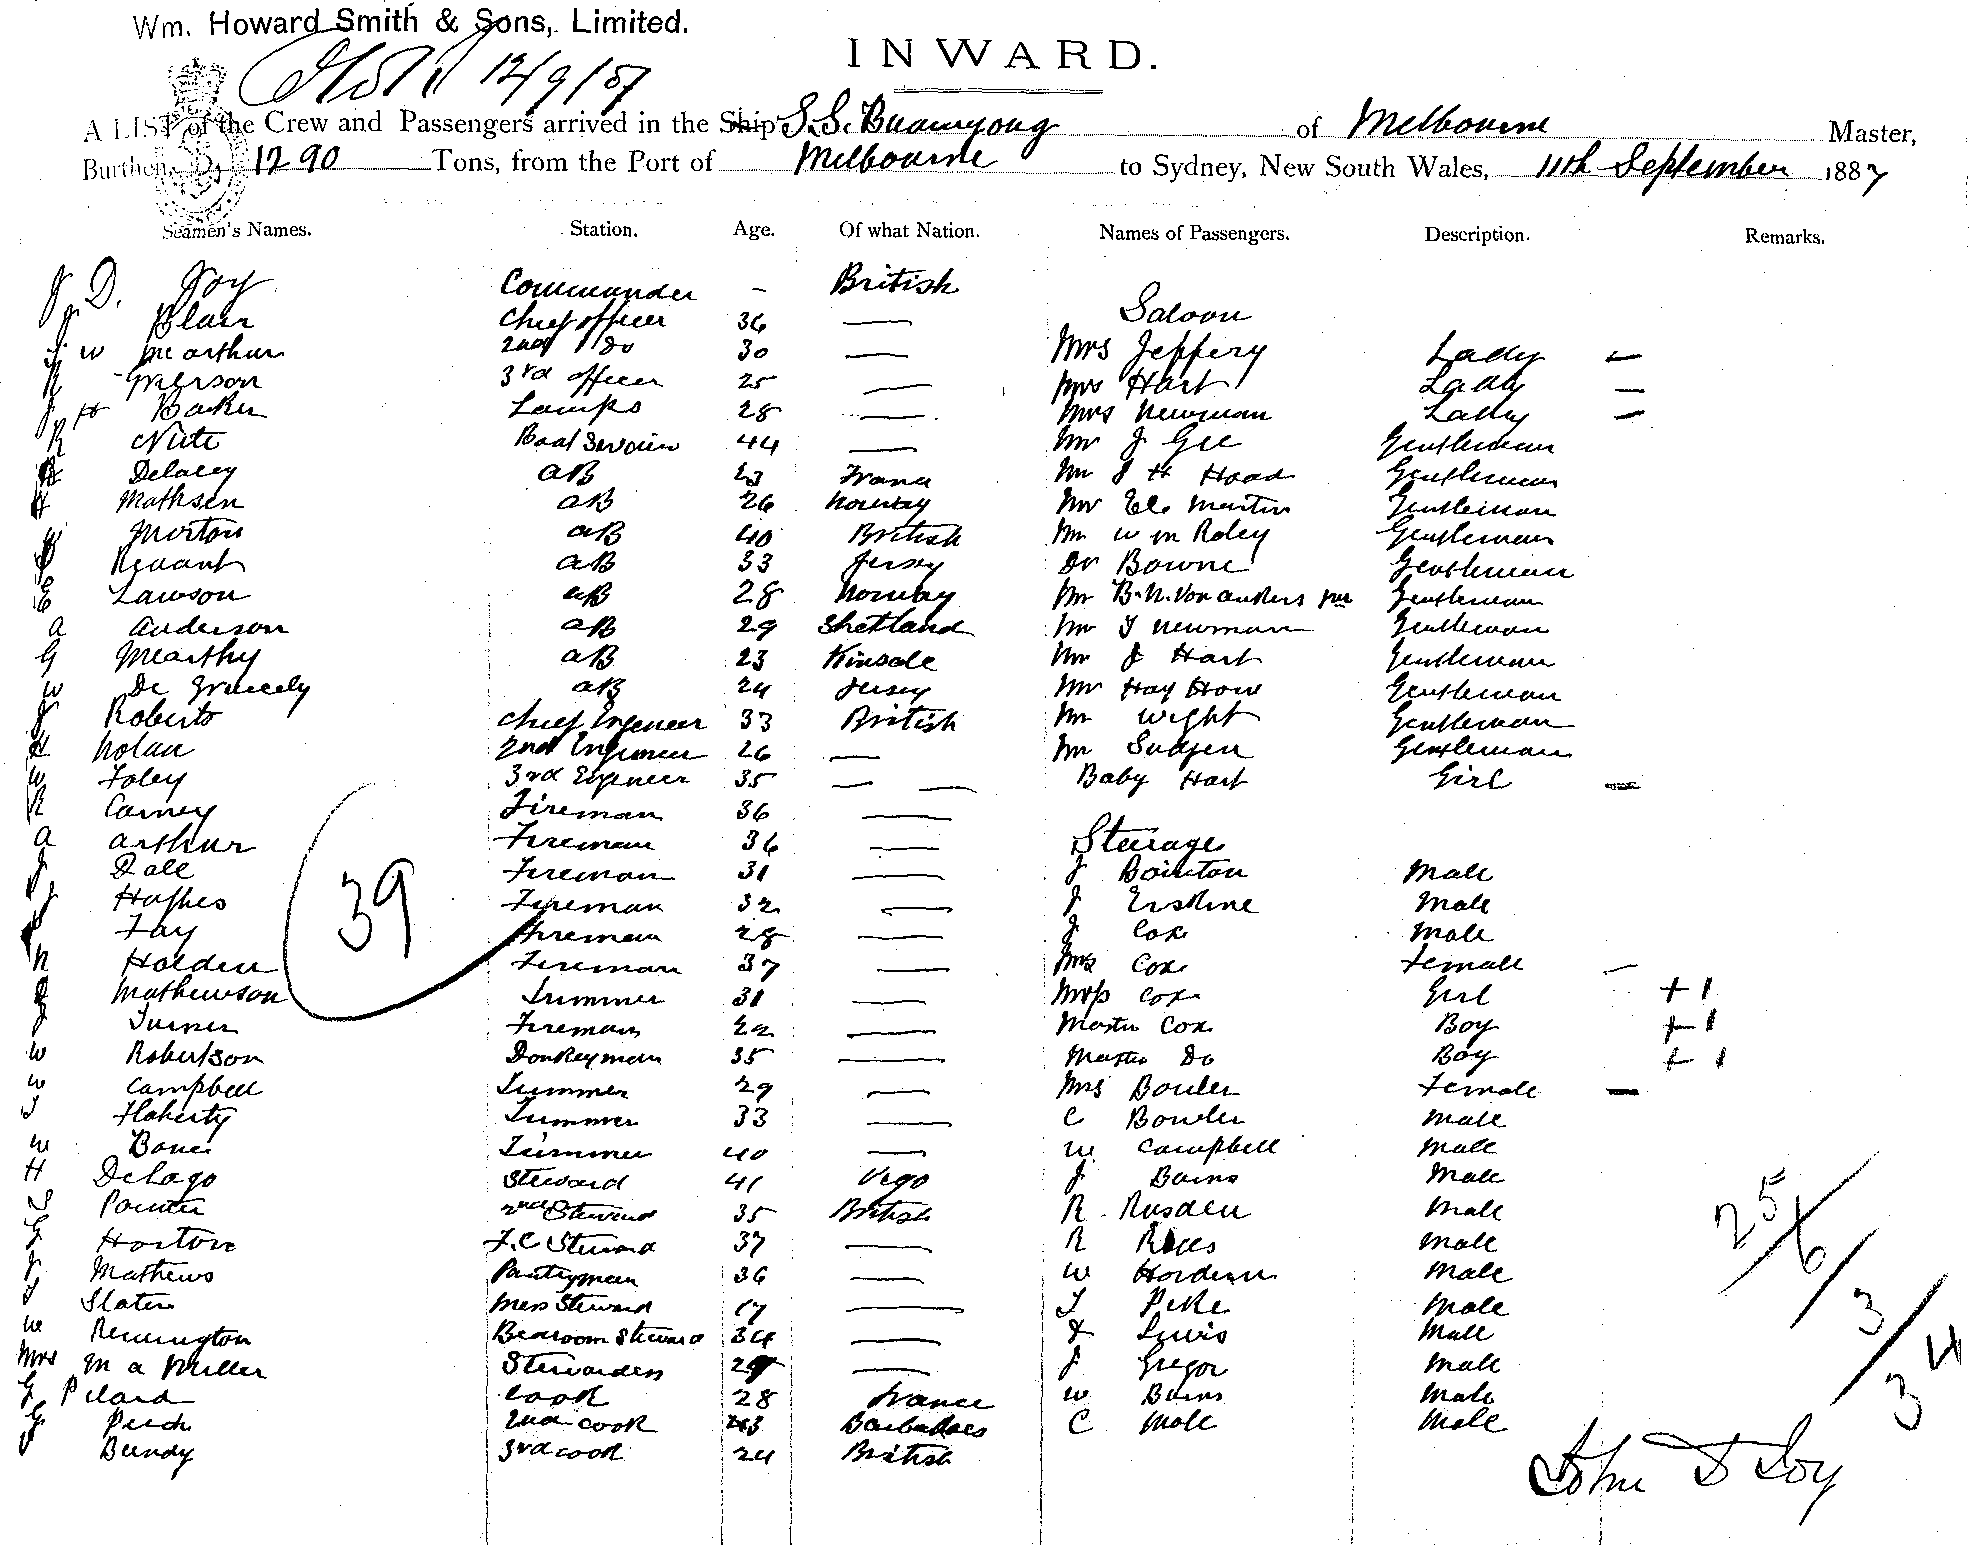 Wm. Howard Smith & Sons, Limited.
12/9/87
INWARD.
A LIST of the Crew and Passengers arrived in the Ship S.S. Buninyong of Melbourne Master,
Burthen, 1290 Tons, from the Port of Melbourne to Sydney, New South Wales, 11th September 1887
Seamen's Names. Station. Age. Of what Nation. Names of Passengers. Description. Remarks.
J. D. Joy Commander - British
Saloon
Blair Chief officer 36 —
J W McArthur 2nd Do 30 — Mrs Jeffery Lady —
R Grierson 3rd officer 25 — Mrs Hart Lady —
J H Baker Lamps 28 — Mrs Newman Lady —
R Nute Boatswain 44 — Mr J Gee Gentleman
Delacey AB 23 France Mr J H Hood Gentleman
H Mathsen AB 26 Norway Mr Martin Gentleman
W Morton AB 40 British Mr W M Roley Gentleman
AB 33 Jersey Dr Bowne Gentleman
E Lawson AB 28 Norway Mr Gentleman
A Anderson AB 29 Shetland Mr T Newman Gentleman
G McArthy AB 23 Kinsale Mr J Hart Gentleman
W De AB 24 Jersey Mr Hay How Gentleman
J Roberts Chief Engineer 33 British Mr Wight Gentleman
H Nolan 2nd Engineer 26 — Mr Sudgen Gentleman
W Foley 3rd Engineer 35 — — Baby Hart Girl —
R Carney Fireman 36 —
A Arthur Fireman 36 — Steerage
J Dale Fireman 31 — J Bointon Male
J Hughes Fireman 32 — J Erskine Male
Fay Fireman 28 — J Cox Male
39
N Holden Fireman 37 — Mrs Cox Female —
Mathewson Trimmer 31 — Miss Cox Girl + 1
J Turner Fireman 22 — Master Cox Boy + 1
W Robertson Donkeyman 35 — Master Do Boy + 1
W Campbell Trimmer 29 — Mrs Bowler Female —
J Flaherty Trimmer 33 — C Bowler Male
W Bone Trimmer 40 — W Campbell Male
H Delago Steward 41 Vigo J Bains Male
S Pointer 2nd Steward 35 British R Rusden Male
G Horton F.C Steward 37 — R Male
J Mathews Pantryman 36 — W Hordern Male
J Slater Mess Steward 17 — T Pike Male
W Remington Bedroom Steward 34 — Lewis Male
Mrs M A Miller Stewardess 29 — J Gregor Male
G Pilard Cook 28 France W Bains Male
G Peach 2nd Cook 43 Barbadoes C Mole Male
J Bundy 3rd cook 24 British
25/6/3/34
John D Joy